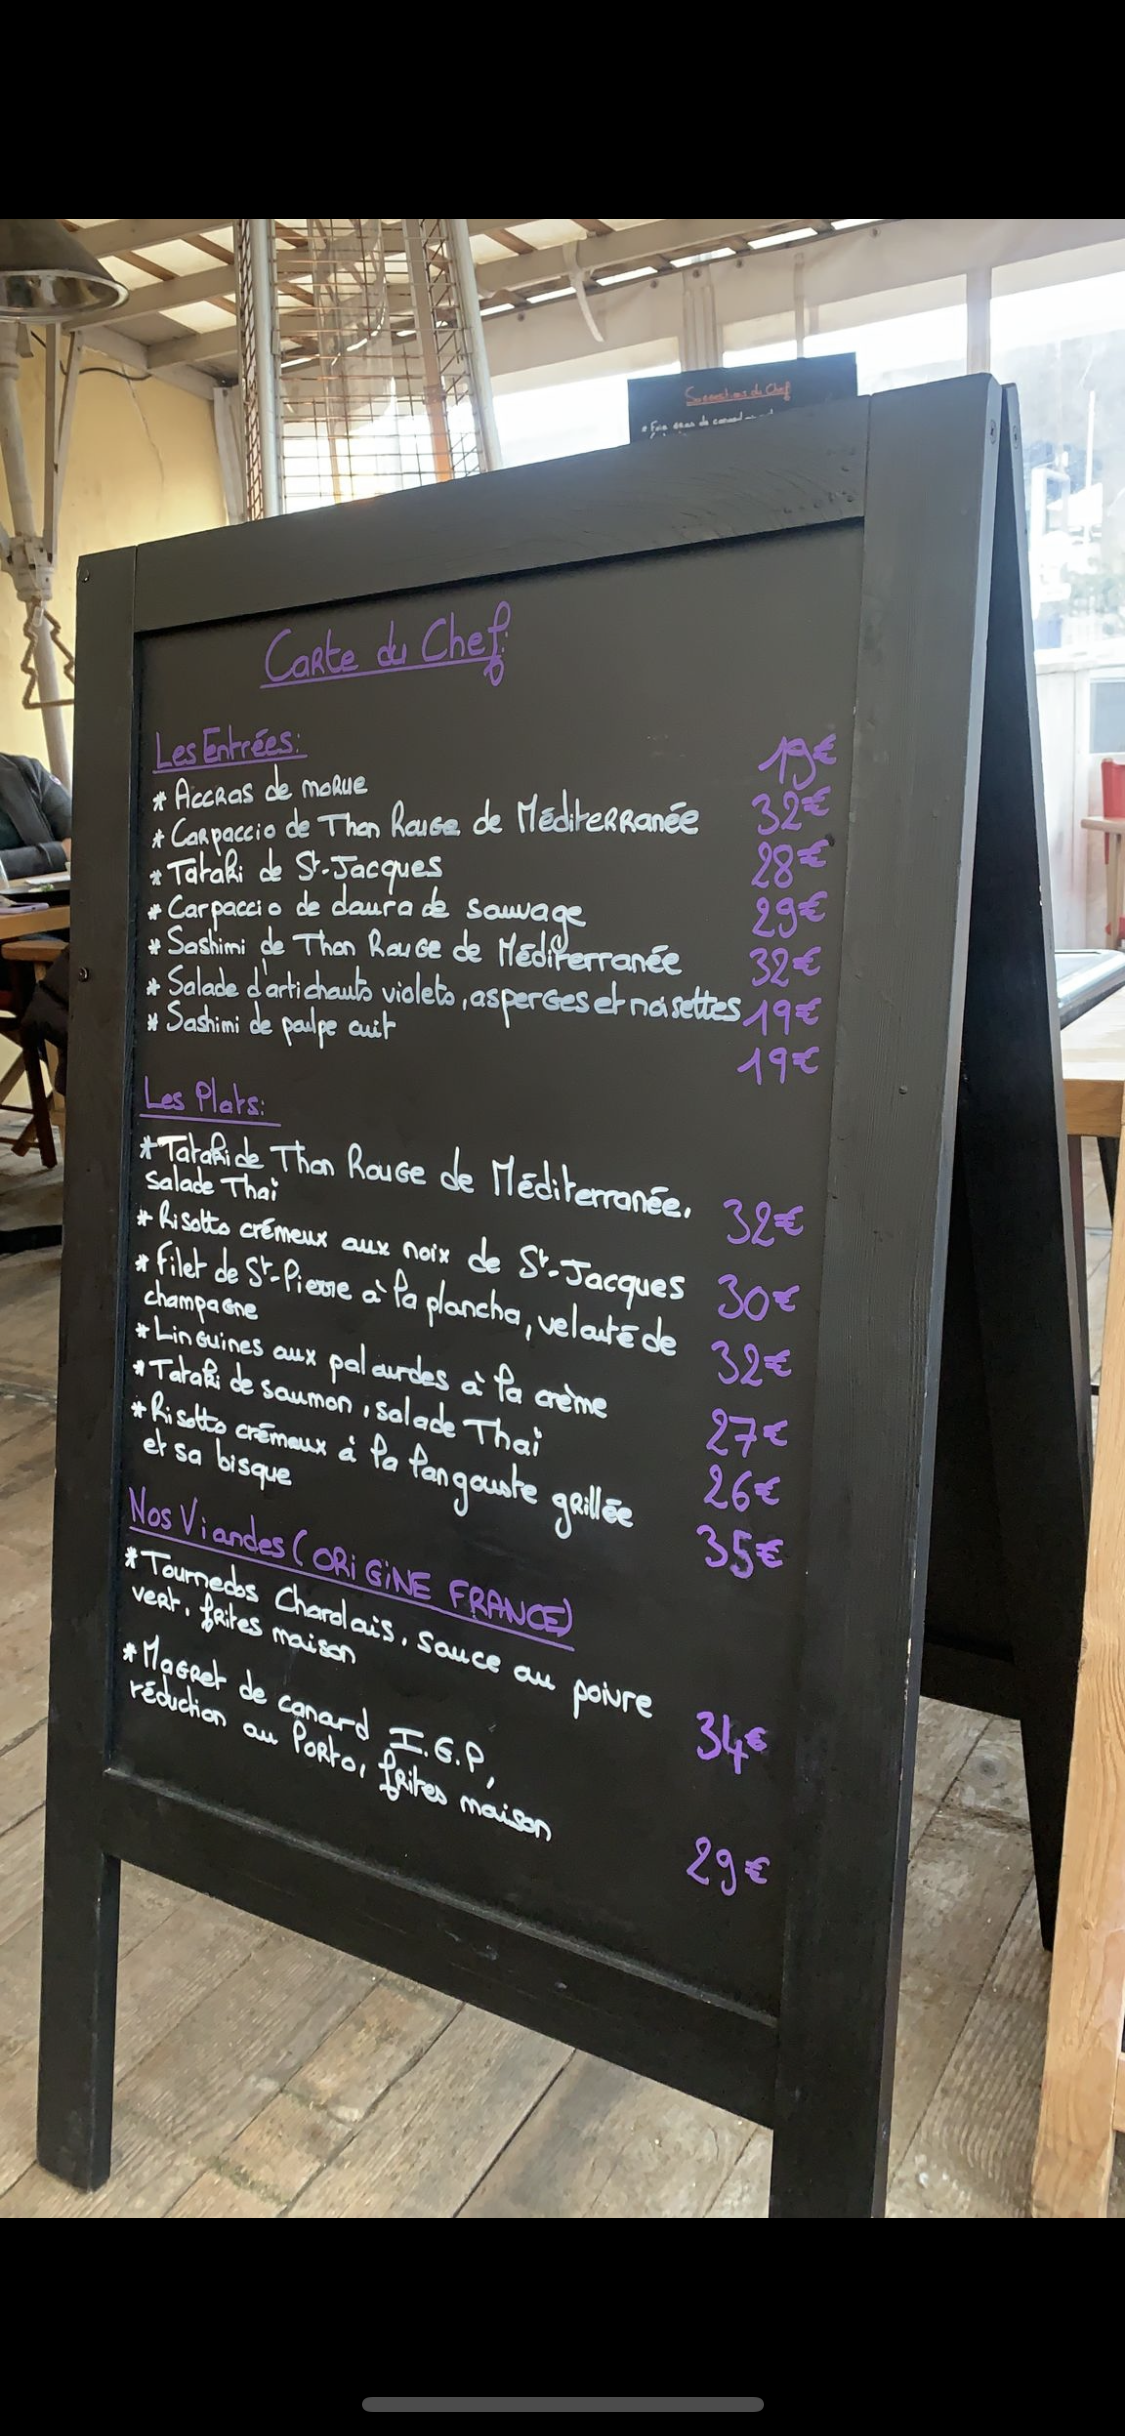 Suggestions du Chef
Carte du Chef:
Les Entrées:
* Accras de morue 19€
* Carpaccio de Thon Rouge de Méditerranée 32€
* Tataki de St-Jacques 28€
* Carpaccio de daurade sauvage 29€
* Sashimi de Thon Rouge de Méditerranée 32€
* Salade d'artichauts violets, asperges et noisettes 19€
* Sashimi de poulpe cuit 19€
Les Plats:
* Tataki de Thon Rouge de Méditerranée,
salade Thaï 32€
* Risotto crémeux aux noix de St-Jacques 30€
* Filet de St-Pierre à la plancha, velouté de
champagne 32€
* Linguines aux palourdes à la crème 27€
* Tataki de saumon, salade Thaï 26€
* Risotto crémeux à la langouste grillée
et sa bisque 35€
Nos Viandes (ORIGINE FRANCE)
* Tournedos Charolais, sauce au poivre
vert, frites maison 34€
* Magret de canard I.G.P,
réduction au Porto, frites maison 29€